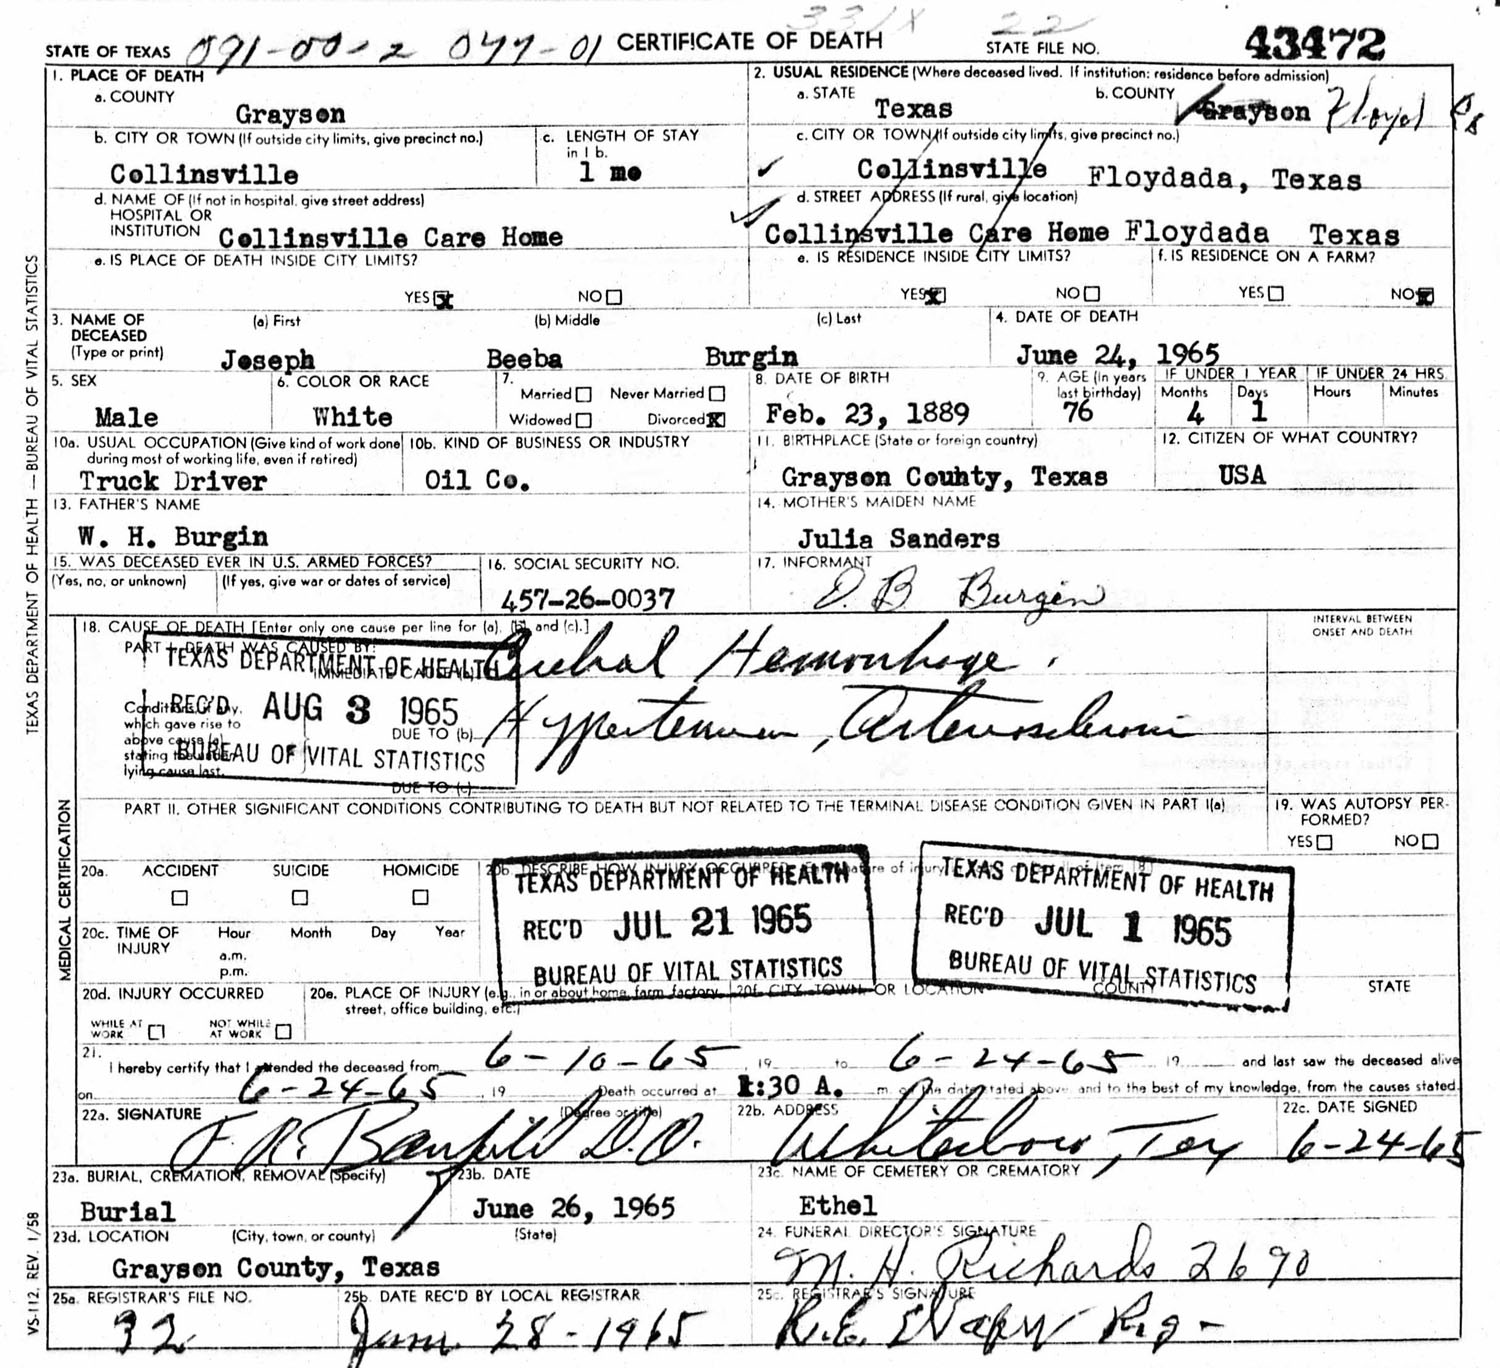 331X 22
STATE OF TEXAS 091-00-2 047-01 CERTIFICATE OF DEATH STATE FILE NO. 43472
1. PLACE OF DEATH
a. COUNTY
Grayson
2. USUAL RESIDENCE (Where deceased lived. If institution: residence before admission)
a. STATE
Texas
b. COUNTY
Grayson Floyd Co
b. CITY OR TOWN (If outside city limits, give precinct no.)
Collinsville
c. LENGTH OF STAY
in 1 b.
1 mo
c. CITY OR TOWN (If outside city limits, give precinct no.)
Collinsville Floydada, Texas
d. NAME OF (If not in hospital, give street address)
HOSPITAL OR
INSTITUTION Collinsville Care Home
d. STREET ADDRESS (If rural, give location)
Collinsville Care Home Floydada Texas
e. IS PLACE OF DEATH INSIDE CITY LIMITS?
YES x NO
e. IS RESIDENCE INSIDE CITY LIMITS?
YES x NO
f. IS RESIDENCE ON A FARM?
YES NO x
3. NAME OF
DECEASED
(Type or print)
(a) First (b) Middle (c) Last
Joseph Beeba Burgin
4. DATE OF DEATH
June 24, 1965
5. SEX
Male
6. COLOR OR RACE
White
7.
Married Never Married
Widowed Divorced X
8. DATE OF BIRTH
Feb. 23, 1889
9. AGE (In years
last birthday)
76
IF UNDER 1 YEAR IF UNDER 24 HRS.
Months Days Hours Minutes
4 1
10a. USUAL OCCUPATION (Give kind of work done
during most of working life, even if retired)
Truck Driver
10b. KIND OF BUSINESS OR INDUSTRY
Oil Co.
11. BIRTHPLACE (State or foreign country)
Grayson County, Texas
12. CITIZEN OF WHAT COUNTRY?
USA
13. FATHER'S NAME
W. H. Burgin
14. MOTHER'S MAIDEN NAME
Julia Sanders
15. WAS DECEASED EVER IN U.S. ARMED FORCES?
(Yes, no, or unknown) (If yes, give war or dates of service)
16. SOCIAL SECURITY NO.
457-26-0037
17. INFORMANT
O. B Burgin
18. CAUSE OF DEATH [Enter only one cause per line for (a), (b), and (c).]
INTERVAL BETWEEN
ONSET AND DEATH
PART I. DEATH WAS CAUSED BY:
IMMEDIATE CAUSE (a) Cerebral Hemorrhage.
Conditions, if any,
which gave rise to
above cause (a),
stating the under-
lying cause last.
DUE TO (b) Hypertension, Arteriosclerosis
DUE TO (c)
TEXAS DEPARTMENT OF HEALTH
REC'D AUG 3 1965
BUREAU OF VITAL STATISTICS
PART II. OTHER SIGNIFICANT CONDITIONS CONTRIBUTING TO DEATH BUT NOT RELATED TO THE TERMINAL DISEASE CONDITION GIVEN IN PART I(a)
19. WAS AUTOPSY PER-
FORMED?
YES NO
20a. ACCIDENT SUICIDE HOMICIDE
20b. DESCRIBE HOW INJURY OCCURRED. nature of injury
TEXAS DEPARTMENT OF HEALTH
REC'D JUL 21 1965
BUREAU OF VITAL STATISTICS
TEXAS DEPARTMENT OF HEALTH
REC'D JUL 1 1965
BUREAU OF VITAL STATISTICS
20c. TIME OF
INJURY
Hour Month Day Year
a.m.
p.m.
20d. INJURY OCCURRED
WHILE AT
WORK
NOT WHILE
AT WORK
20e. PLACE OF INJURY (e.g., in or about home, farm, factory,
street, office building, etc.)
20f. CITY, TOWN, OR LOCATION COUNTY STATE
21.
I hereby certify that I attended the deceased from 6-10-65, 19 to 6-24-65, 19 and last saw the deceased alive
on 6-24-65 19 Death occurred at 1:30 A. m. on the date stated above, and to the best of my knowledge, from the causes stated.
22a. SIGNATURE (Degree or title)
D.O.
22b. ADDRESS
Whitesboro, Tex
22c. DATE SIGNED
6-24-65
23a. BURIAL, CREMATION, REMOVAL (Specify)
Burial
23b. DATE
June 26, 1965
23c. NAME OF CEMETERY OR CREMATORY
Ethel
23d. LOCATION (City, town, or county) (State)
Grayson County, Texas
24. FUNERAL DIRECTOR'S SIGNATURE
M. H. Richards 2690
25a. REGISTRAR'S FILE NO.
32
25b. DATE REC'D BY LOCAL REGISTRAR
June 28-1965
25c. REGISTRAR'S SIGNATURE
TEXAS DEPARTMENT OF HEALTH — BUREAU OF VITAL STATISTICS
MEDICAL CERTIFICATION
VS-112, REV. 1/58